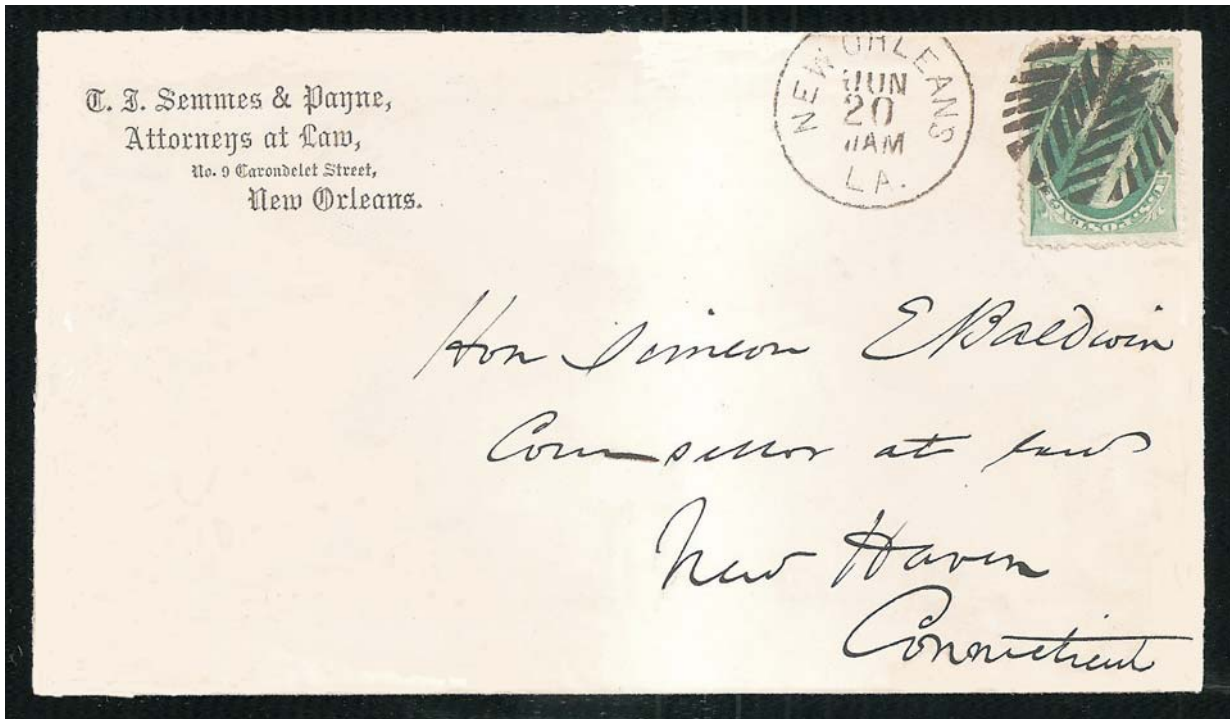 T. J. Semmes & Payne,
Attorneys at Law,
No. 9 Carondelet Street,
New Orleans.
NEW ORLEANS
JUN
20
AM
LA.
Hon Simeon E Baldwin
Counsellor at law
New Haven
Connecticut